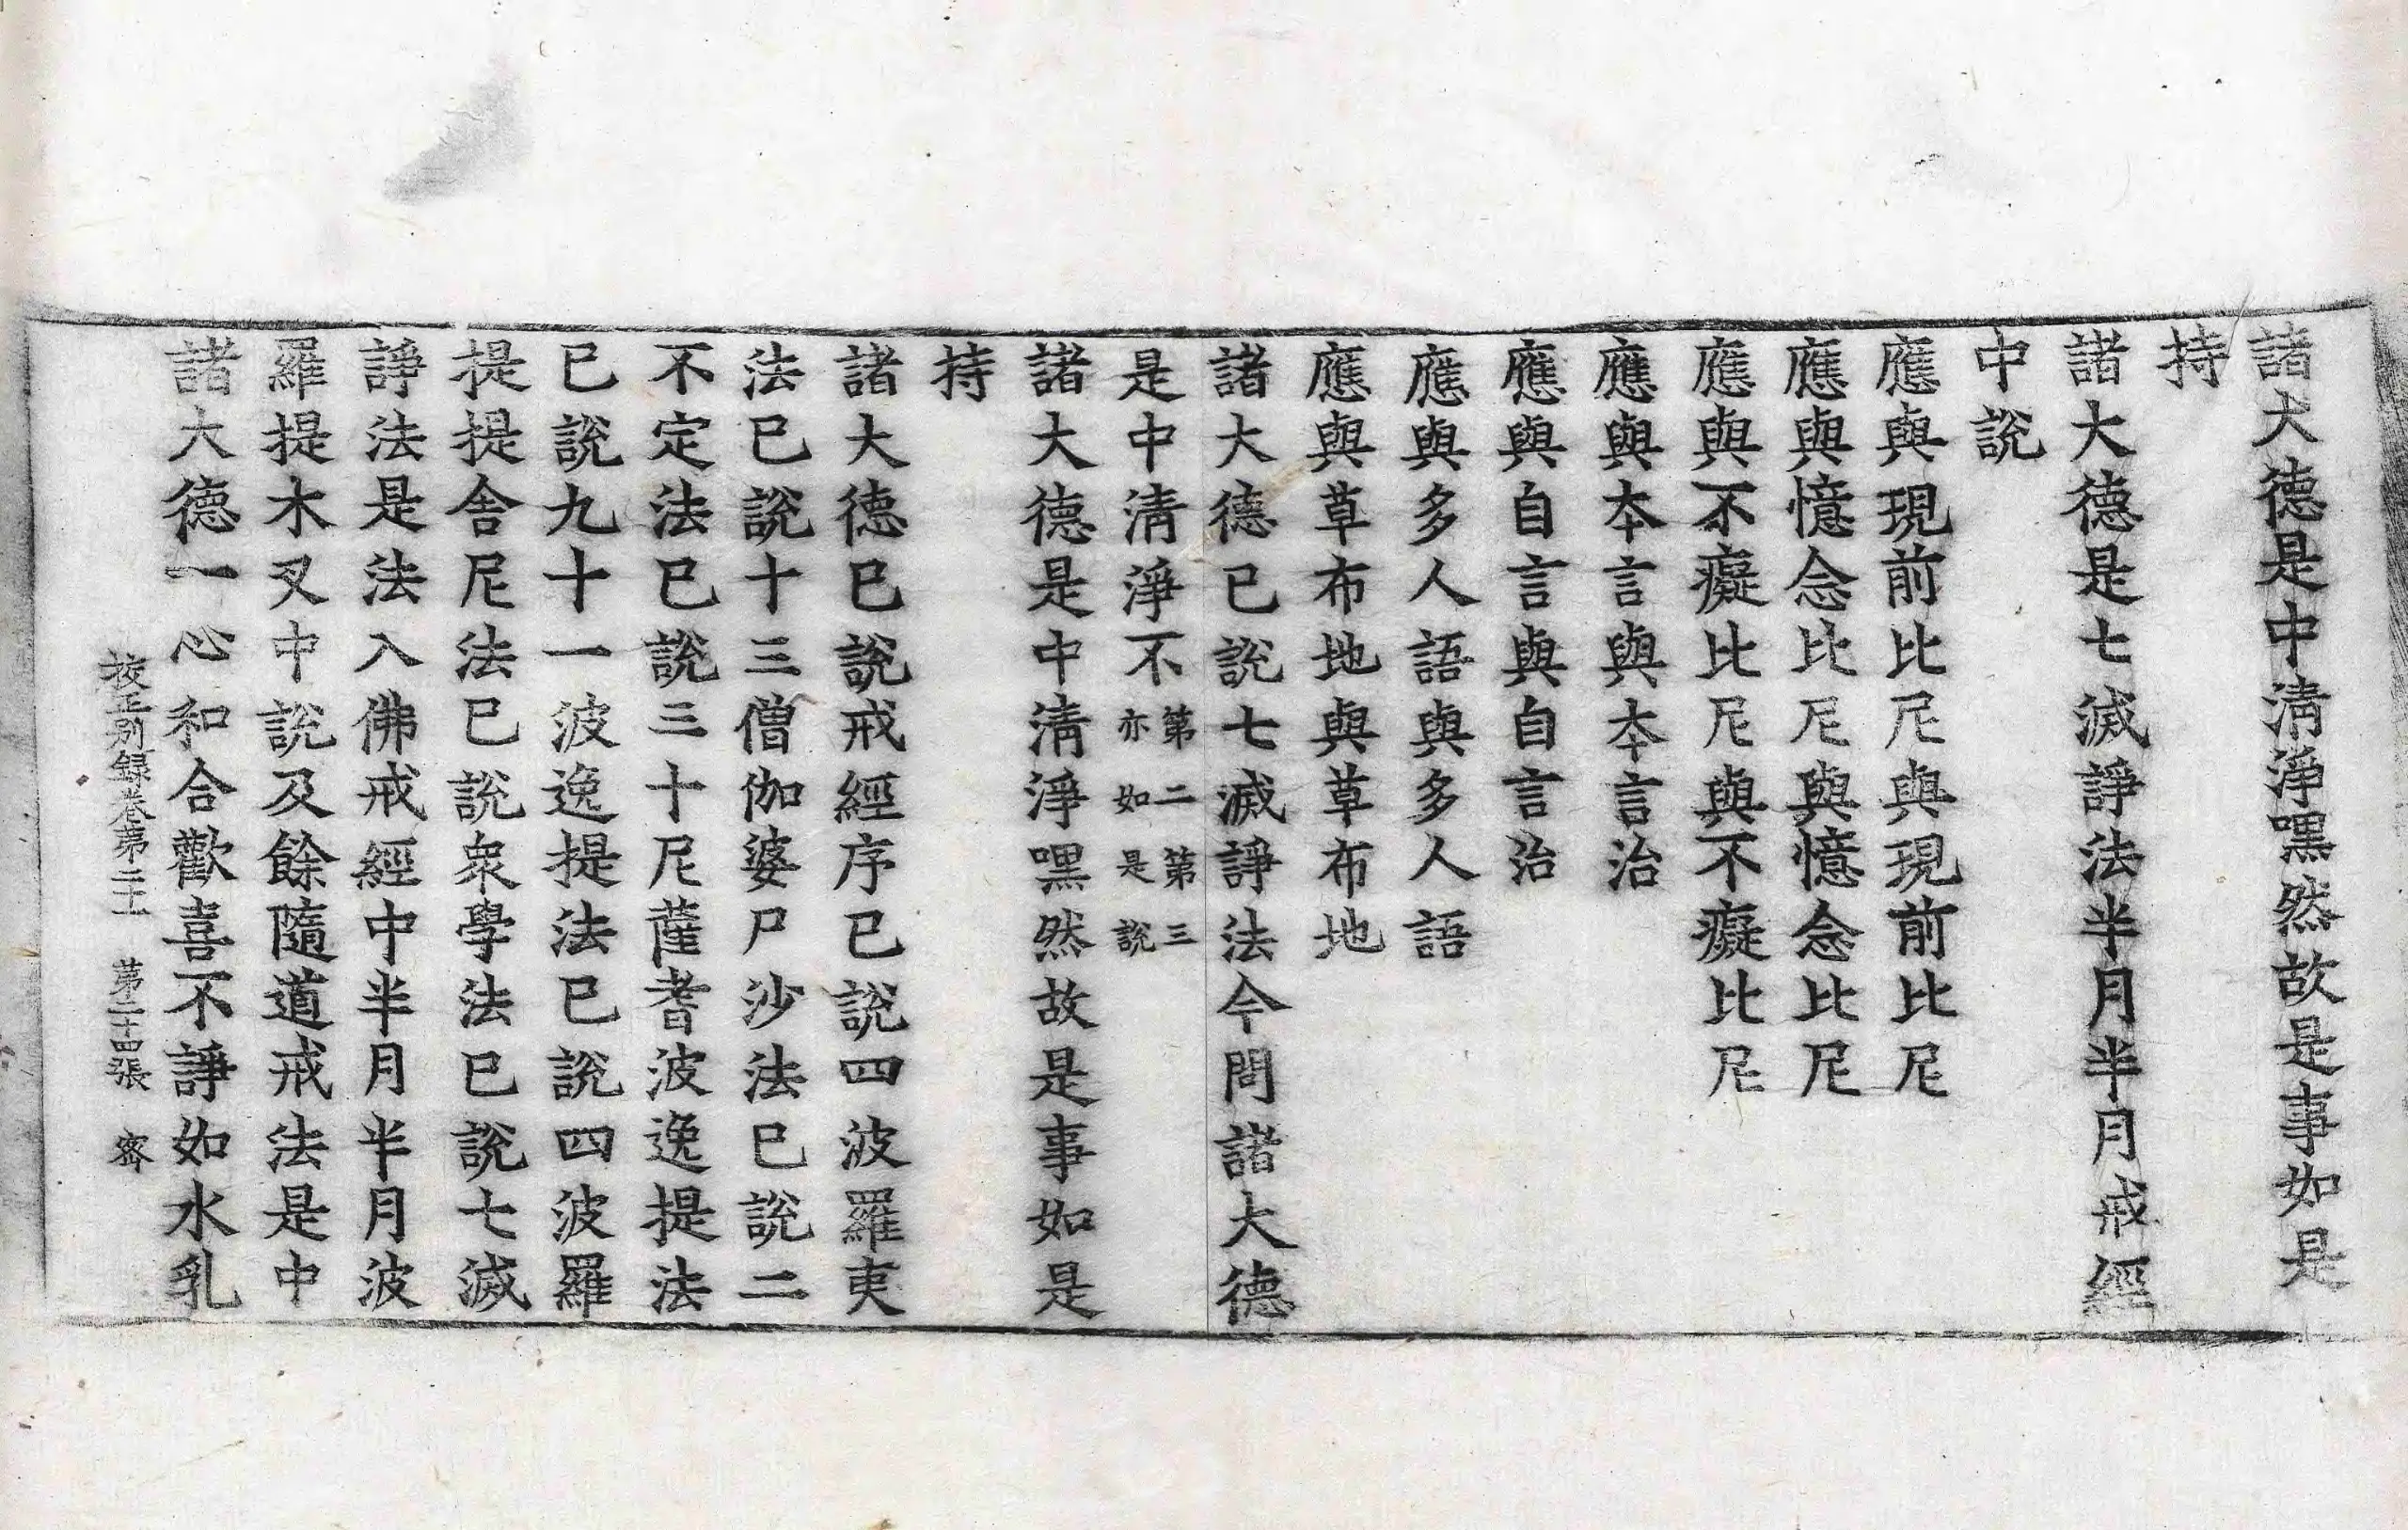 諸大徳是中淸淨嘿然故是事如是
持
諸大徳是七滅諍法半月半月戒經
中說
應與現前比尼與現前比尼
應與憶念比尼與憶念比尼
應與不癡比尼與不癡比尼
應與本言與本言治
應與自言與自言治
應與多人語與多人語
應與草布地與草布地
諸大徳已說七滅諍法今問諸大徳
是中淸淨不第二第三亦如是說
諸大徳是中淸淨嘿然故是事如是
持
諸大徳已說戒經序已說四波羅夷
法已說十三僧伽婆尸沙法已說二
不定法已說三十尼薩耆波逸提法
已說九十一波逸提法已說四波羅
提提舍尼法已說衆學法已說七滅
諍法是法入佛戒經中半月半月波
羅提木叉中說及餘隨道戒法是中
諸大徳一心和合歡喜不諍如水乳
校正別録卷第二十一 第二十四張 密